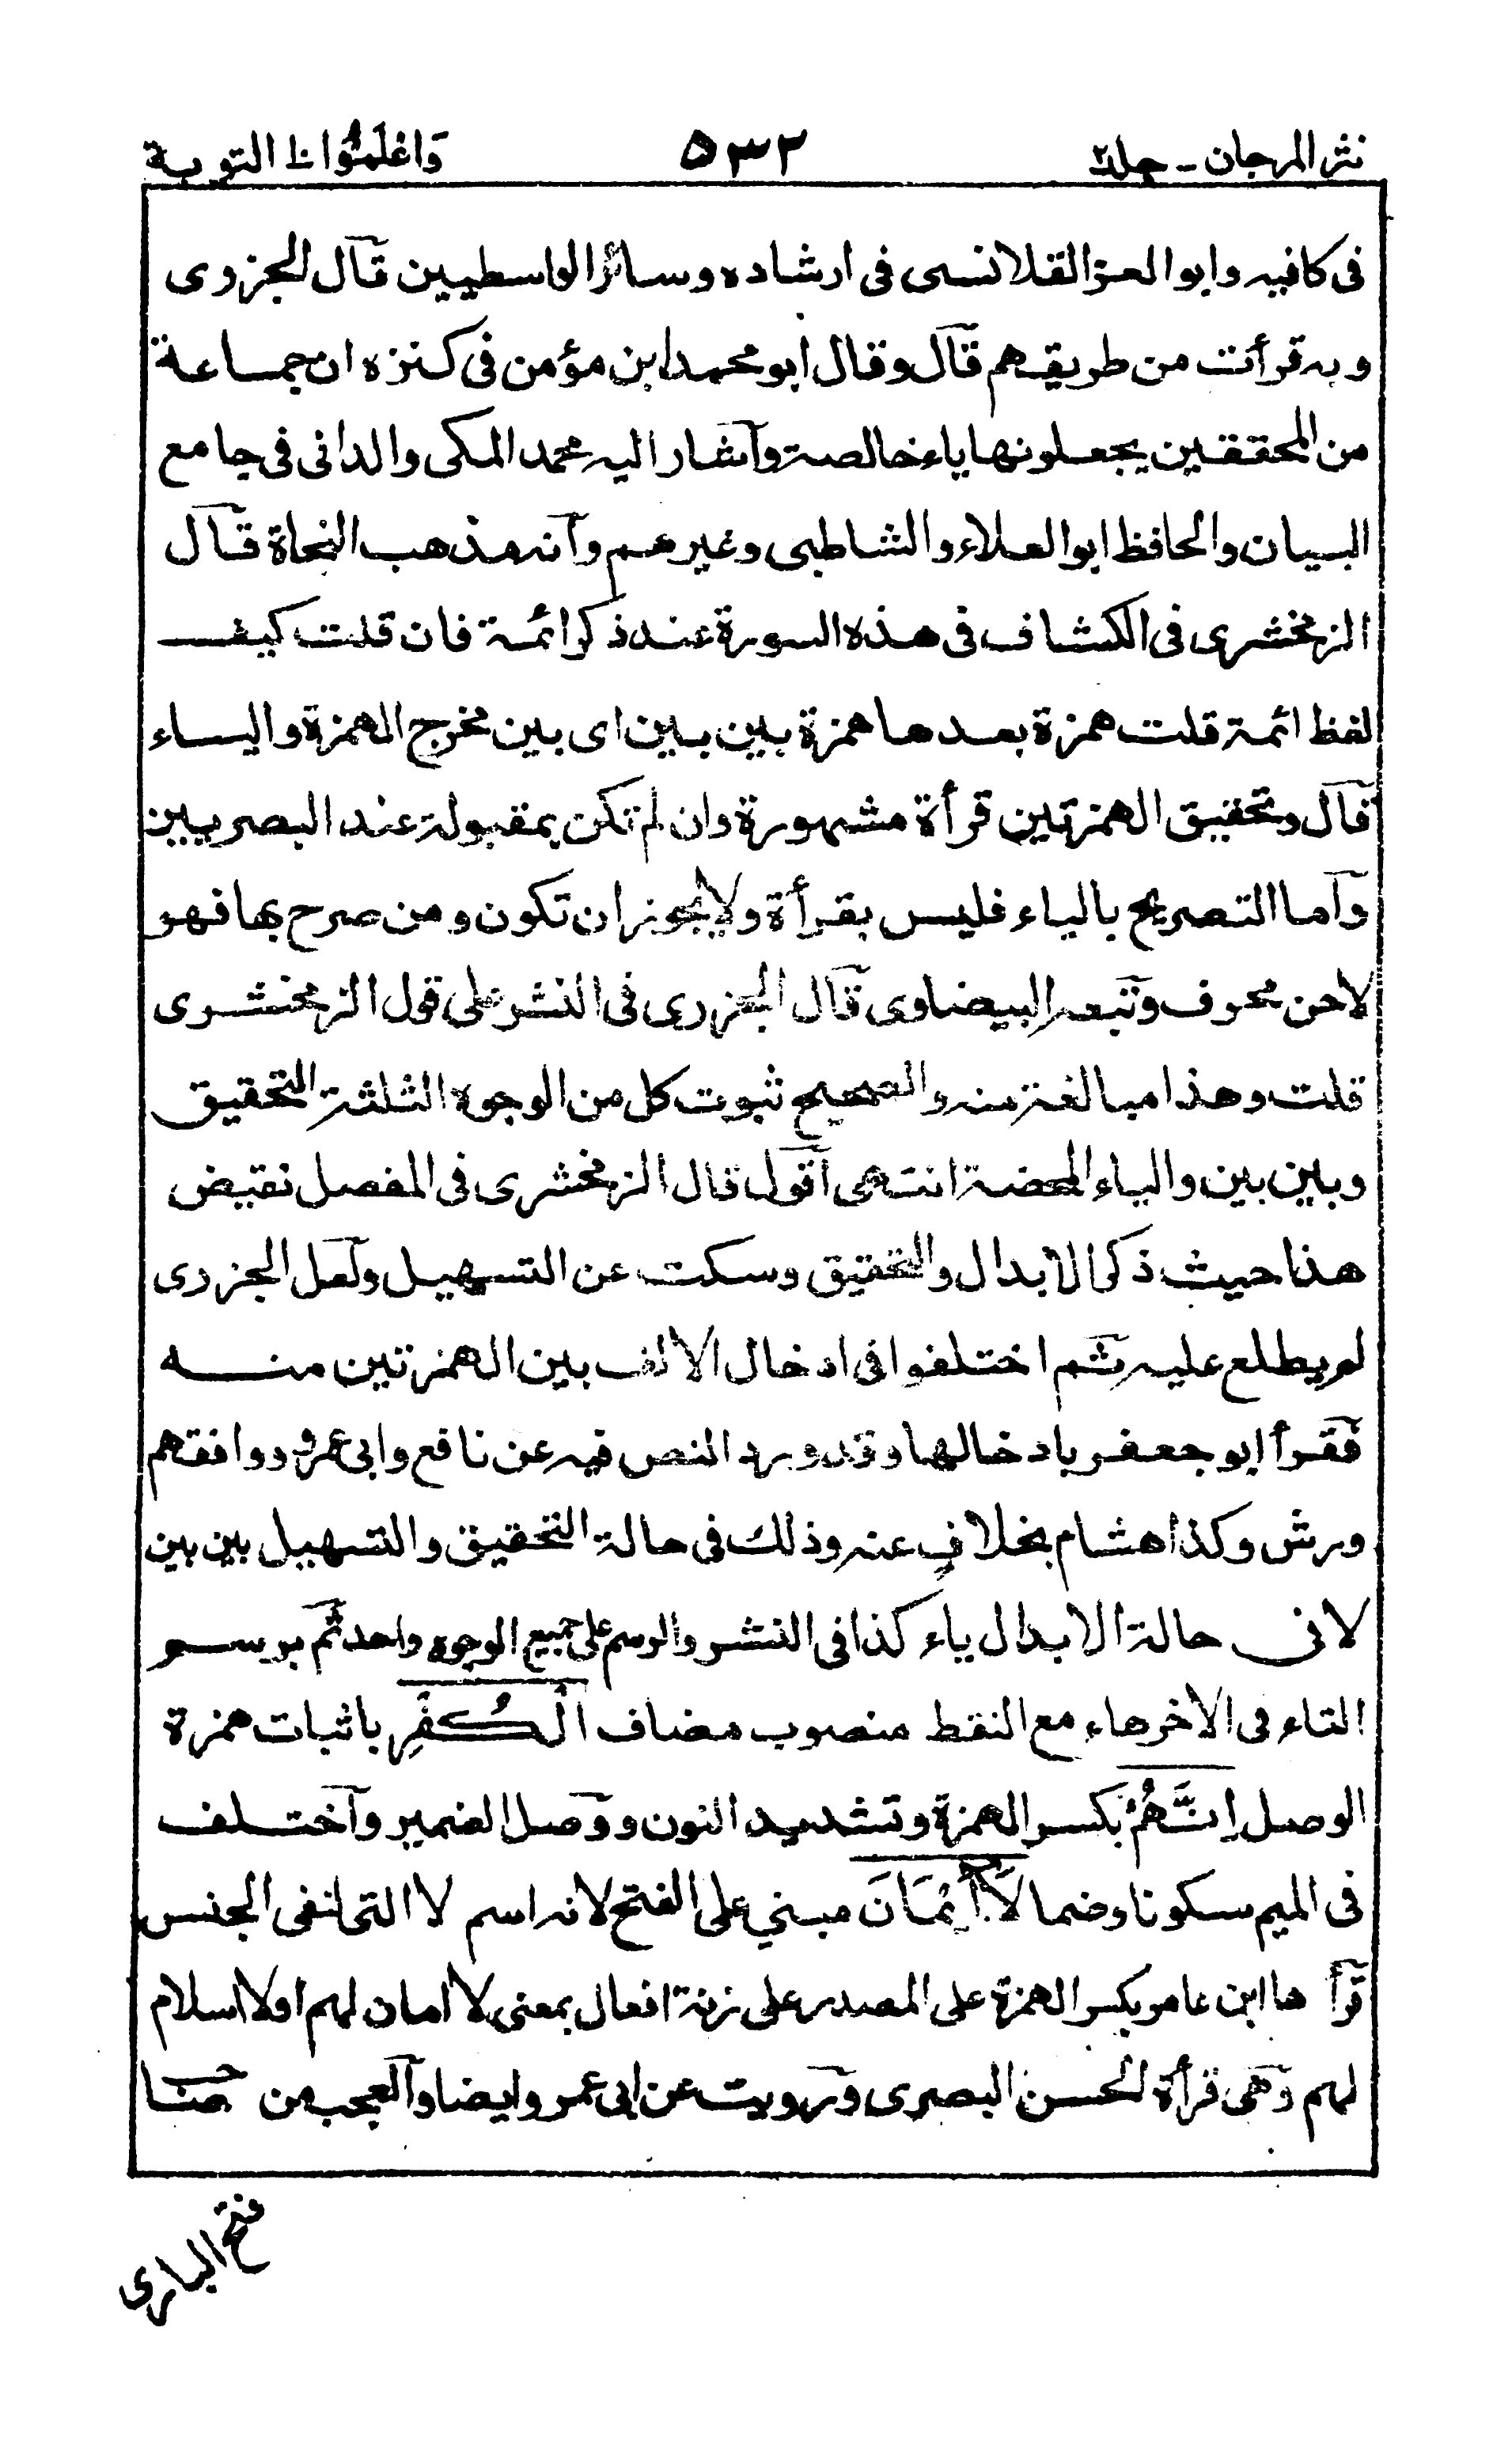 نثر المرجان - جلد٢ ٥٣٢ وَاعْلَمُوْا١٠ التوبة
فى كافيه وابو العز القلانسى فى ارشاده وسائر الواسطيين قال الجزرى
وبه قرأت من طريقهم قال وقال ابو محمد ابن مؤمن فى كنزه ان جماعة
من المحققين يجعلونها ياء خالصة واشار اليه محمد المكى والدانى فى جامع
البيان والحافظ ابو العلاء والشاطبى وغيرهم وانه مذهب النحاة قال
الزمخشرى فى الكشاف فى هذه السورة عند ذكر ائمة فان قلت كيف
لفظ ائمة قلت همزة بعدها همزة بين بين اى بين مخرج الهمزة والياء
قال وتحقيق الهمزتين قرأة مشهورة وان لم تكن بمقبولة عند البصريين
واما التصريح بالياء فليس بقرأة ولا يجوز ان تكون ومن صرح بها فهو
لاحن محرف وتبعه البيضاوى قال الجزرى فى النشر على قول الزمخشرى
قلت وهذا مبالغة منه والصحيح ثبوت كل من الوجوه الثلثة التحقيق
وبين بين والياء المحضة انتهى اقول قال الزمخشرى فى المفصل نقيض
هذا حيث ذكر الابدال والتحقيق وسكت عن التسهيل ولعل الجزرى
لم يطلع عليه ثم اختلفوا فى ادخال الالف بين الهمزتين منه
فقرأ ابو جعفر بادخالها وقد ورد النص فيه عن نافع وابى عمرو ووافقهم
ورش وكذا هشام بخلافٍ عنه وذلك فى حالة التحقيق والتسهيل بين بين
لا فى حالة الابدال ياء كذا فى النشر والرسم على جميع الوجوه واحد ثم برسم
التاء فى الاخر هاء مع النقط منصوب مضاف الْكُفْرِ باثبات همزة
الوصل اِنَّهُمْ بكسر الهمزة وتشديد النون ووصل الضمير واختلف
فى الميم سكونا وضما لَآ اَيْمَانَ مبني على الفتح لانه اسم لا التى لنفى الجنس
قرأ ها ابن عامر بكسر الهمزة على المصدر على زنة افعال بمعنى لا امان لهم او لا اسلام
لهم وهى قرأة الحسن البصرى ورويت عن ابى عمرو ايضا والعجب من صاحب
فتح البارى